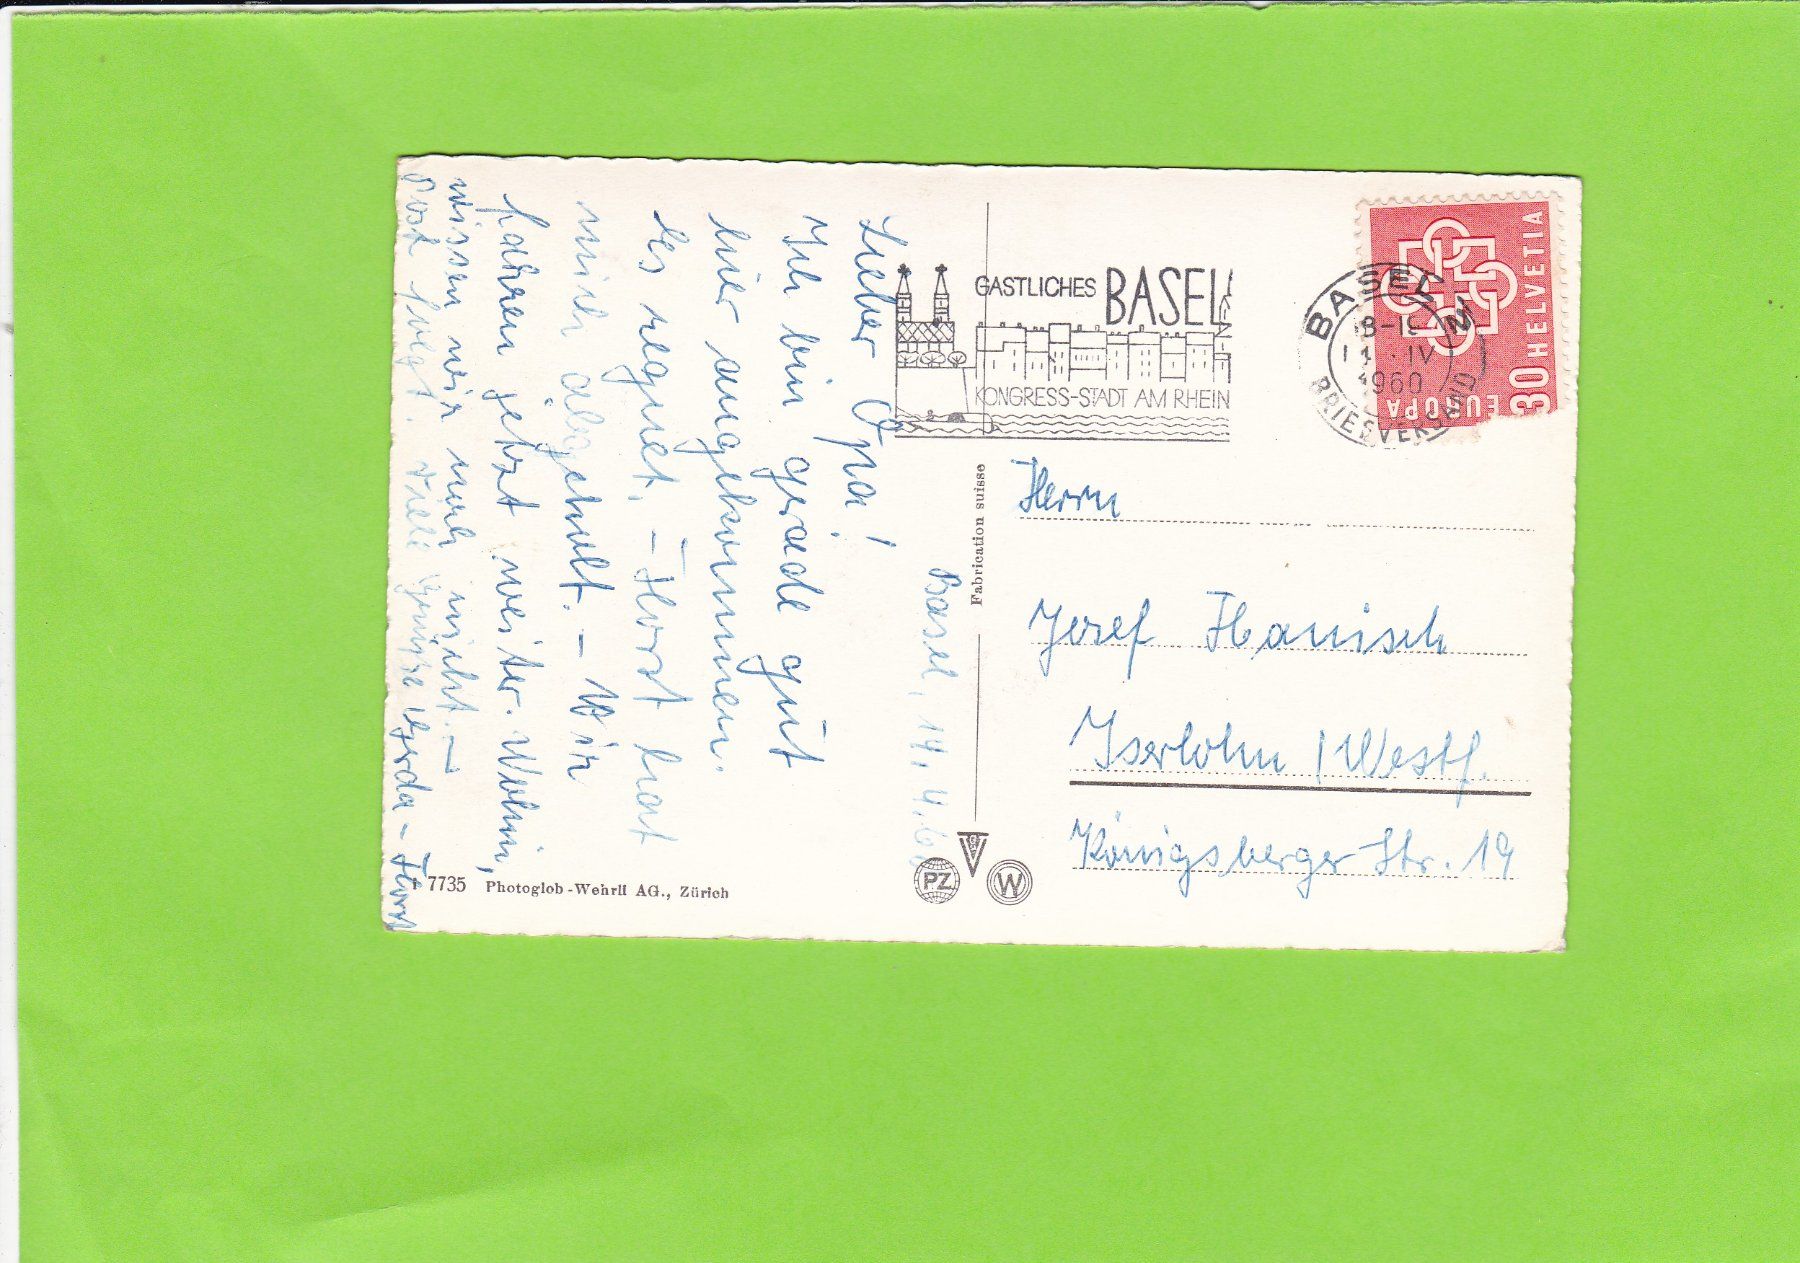 Basel, 14.4.60
Lieber Opa!
Ich bin gerade gut
hier angekommen.
Es regnet. – Horst hat
mich abgeholt. – Wir
fahren jetzt weiter. Wohin,
wissen wir noch nicht. –
Post folgt. Viele Grüße Gerda – Horst
7735 Photoglob-Wehrli AG., Zürich
Fabrication suisse
PZ
W
GASTLICHES BASEL
KONGRESS-STADT AM RHEIN
BASEL
18-19
IV
1960
BRIEFVERSAND
EUROPA
30 HELVETIA
Herrn
Josef Hanisch
Iserlohn / Westf.
Königsberger Str. 19